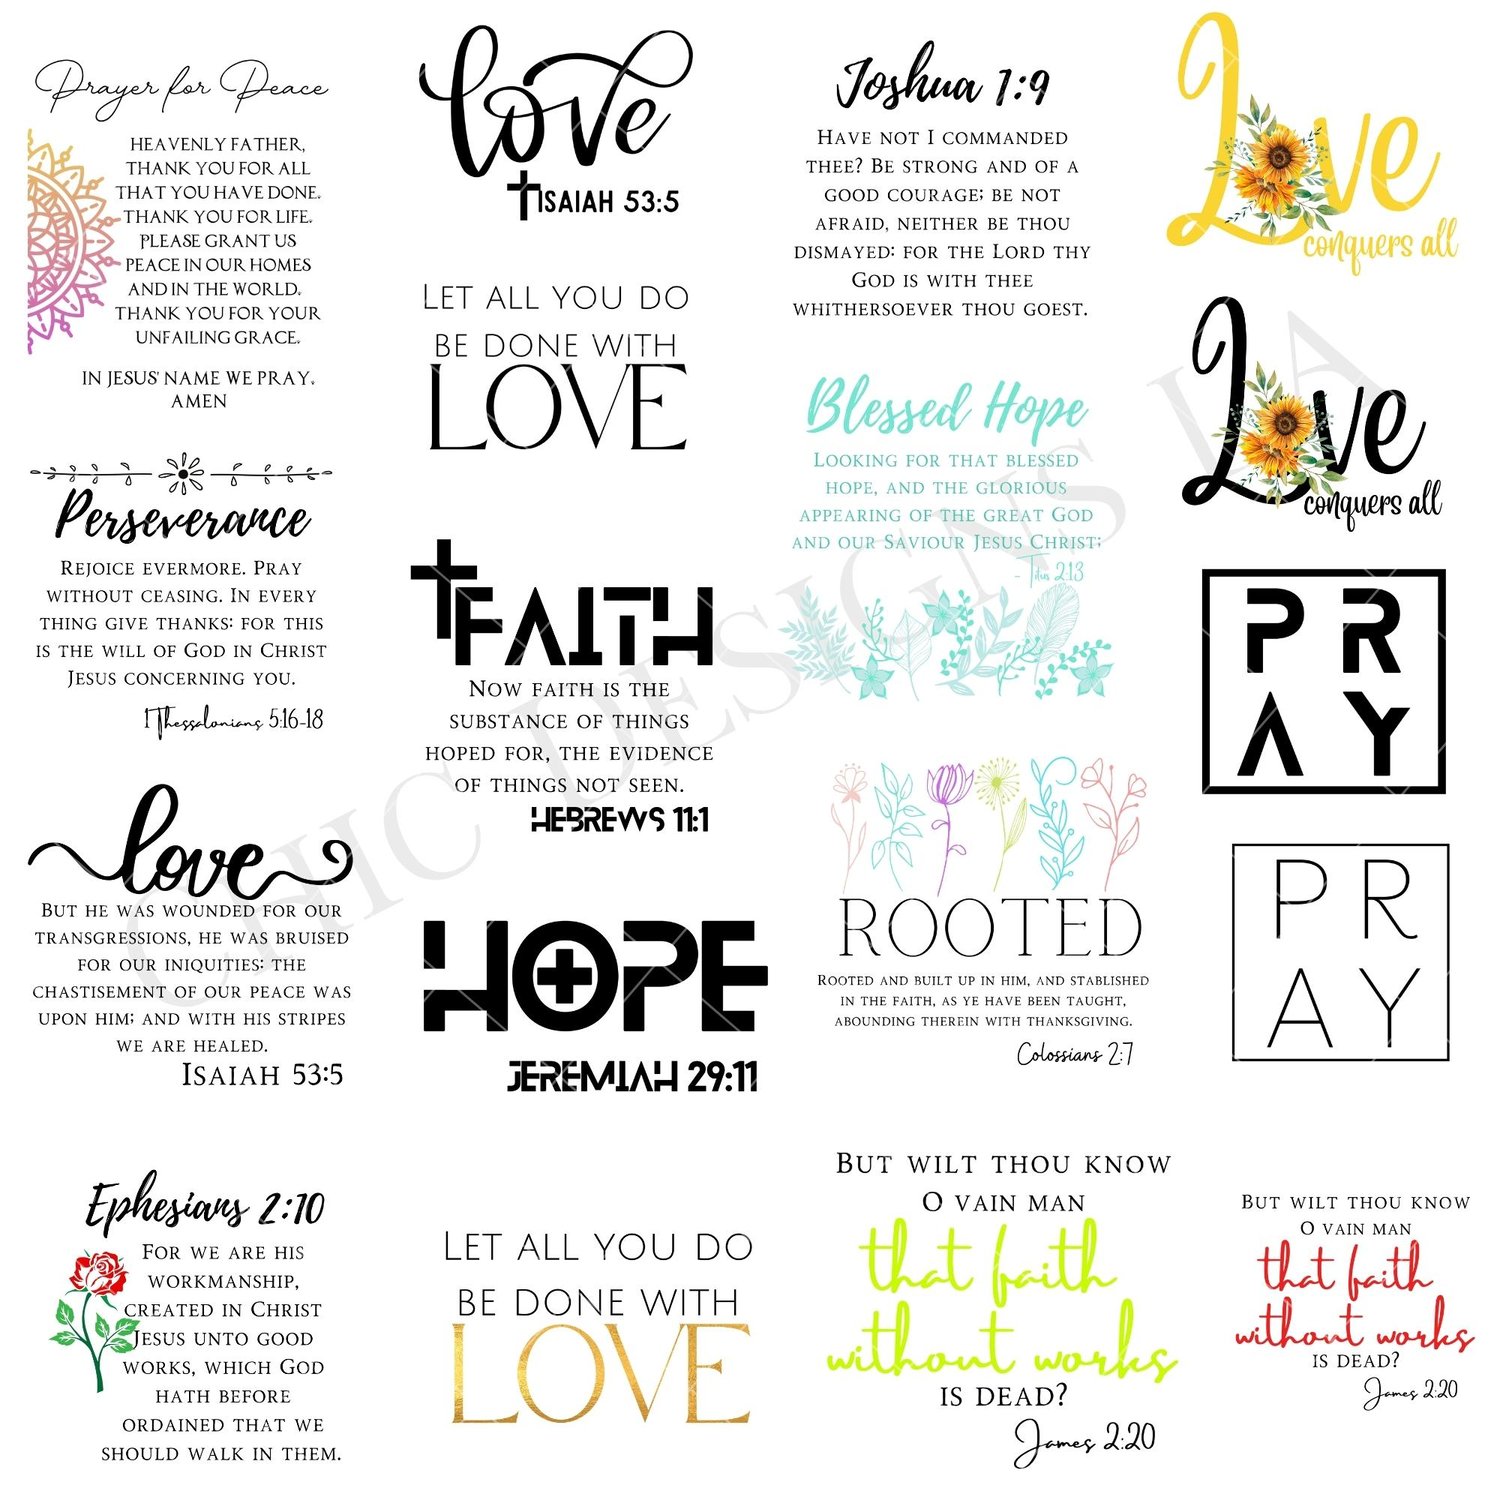 Prayer for Peace
HEAVENLY FATHER,
THANK YOU FOR ALL
THAT YOU HAVE DONE.
THANK YOU FOR LIFE.
PLEASE GRANT US
PEACE IN OUR HOMES
AND IN THE WORLD.
THANK YOU FOR YOUR
UNFAILING GRACE.
IN JESUS' NAME WE PRAY.
AMEN
Perseverance
REJOICE EVERMORE. PRAY
WITHOUT CEASING. IN EVERY
THING GIVE THANKS: FOR THIS
IS THE WILL OF GOD IN CHRIST
JESUS CONCERNING YOU.
1 Thessalonians 5:16-18
love
BUT HE WAS WOUNDED FOR OUR
TRANSGRESSIONS, HE WAS BRUISED
FOR OUR INIQUITIES: THE
CHASTISEMENT OF OUR PEACE WAS
UPON HIM; AND WITH HIS STRIPES
WE ARE HEALED.
ISAIAH 53:5
Ephesians 2:10
FOR WE ARE HIS
WORKMANSHIP,
CREATED IN CHRIST
JESUS UNTO GOOD
WORKS, WHICH GOD
HATH BEFORE
ORDAINED THAT WE
SHOULD WALK IN THEM.
love
ISAIAH 53:5
LET ALL YOU DO
BE DONE WITH
LOVE
FAITH
NOW FAITH IS THE
SUBSTANCE OF THINGS
HOPED FOR, THE EVIDENCE
OF THINGS NOT SEEN.
HEBREWS 11:1
HOPE
JEREMIAH 29:11
LET ALL YOU DO
BE DONE WITH
LOVE
Joshua 1:9
HAVE NOT I COMMANDED
THEE? BE STRONG AND OF A
GOOD COURAGE; BE NOT
AFRAID, NEITHER BE THOU
DISMAYED: FOR THE LORD THY
GOD IS WITH THEE
WHITHERSOEVER THOU GOEST.
Blessed Hope
LOOKING FOR THAT BLESSED
HOPE, AND THE GLORIOUS
APPEARING OF THE GREAT GOD
AND OUR SAVIOUR JESUS CHRIST;
- Titus 2:13
ROOTED
ROOTED AND BUILT UP IN HIM, AND STABLISHED
IN THE FAITH, AS YE HAVE BEEN TAUGHT,
ABOUNDING THEREIN WITH THANKSGIVING.
Colossians 2:7
BUT WILT THOU KNOW
O VAIN MAN
that faith
without works
IS DEAD?
James 2:20
Love
conquers all
Love
conquers all
PR
AY
PR
AY
BUT WILT THOU KNOW
O VAIN MAN
that faith
without works
IS DEAD?
James 2:20
CHIC DESIGNS LA